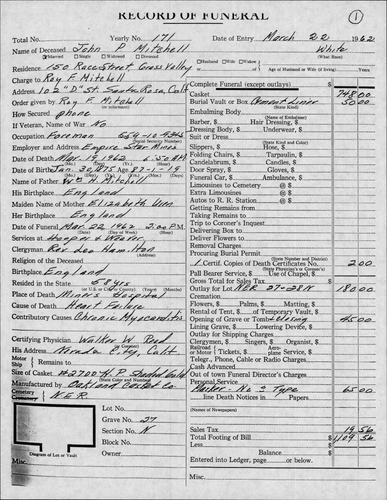 RECORD OF FUNERAL
1
Total No. Yearly No. 171 Date of Entry March 22 1962
Name of Deceased John P Mitchell White
Married Single Widowed Divorced Husband Wife Widow
Residence 150 Race Street Grass Valley Age of Husband or Wife (if living) Years
Charge to Ray F. Mitchell
Address 102 "D" St. Santa Rosa, Calif
Order given by Ray F. Mitchell
How Secured phone
If Veteran, Name of War No
Occupation Foreman
Employer and Address Empire Star Mines
Date of Death Mar. 19, 1962 6:50 AM
Date of Birth Jan. 30, 1875 Age 87-1-19
Name of Father Wm H. Mitchell
His Birthplace England
Maiden Name of Mother Elizabeth Uren
Her Birthplace England
Date of Funeral Mar 22, 1962 2:00 P.M.
Services at Hooper & Weaver
Clergyman Rev Leo Hamilton
Religion of the Deceased
Birthplace England
Resided in the State 68 yrs
Place of Death Miners Hospital
Cause of Death Heart Failure
Contributory Causes Chronic Myocarditis
Certifying Physician Walker W Reed
His Address Nevada City, Calif
Motor Ship Remains to
Size of Casket #2700 H.P.
Manufactured by Oakland Casket Co.
Cemetery N.E.R.
Lot No.
Grave No. 27
Section No. N
Block No.
Owner
Diagram of Lot or Vault
Misc.
Complete Funeral (except outlays) $
Casket 748 00
Burial Vault or Box Cement Liner 50 00
Embalming Body
(Name of Embalmer)
Barber, $ Hair Dressing, $
Dressing Body, $ Underwear, $
Suit or Dress
(State Kind and Color)
Slippers, $ Hose, $
Folding Chairs, $ Tarpaulin, $
Candelabrum, $ Candles, $
Door Spray, $ Gloves, $
Funeral Car, $ Ambulance, $
Limousines to Cemetery @ $
Extra Limousines @ $
Autos to R. R. Station @ $
Getting Remains from
Taking Remains to
Trip to Coroner's Inquest
Delivering Box to
Deliver Flowers to
Removal Charges
Procuring Burial Permit
(State Number and District)
1 Certif. Copies of Death Certificates No. 2 00
Pall Bearer Service, $ Use of Chapel, $
Gross Total for Sales Tax $
Outlay for Lot NER 27-28N 180 00
Cremation
Flowers, $ Palms, $ Matting, $
Rental of Tent, $ of Temporary Vault, $
Opening of Grave or Tomb + closing 45 00
Lining Grave, $ Lowering Device, $
Outlay for Shipping Charges
Clergymen, $ Singers, $ Organist, $
Railroad / Motor Tickets, $ Aeroplane Service, $
Telegr., Phone, Cable or Radio Charges
Cash Advanced
Out of town Funeral Director's Charges
Personal Service
Marker - No 3 Type 65 00
line Death Notices in Papers
(Names of Newspapers)
Sales Tax 19 56
Total Footing of Bill $ 1109 56
Less $
Balance $
Entered into Ledger, page or below